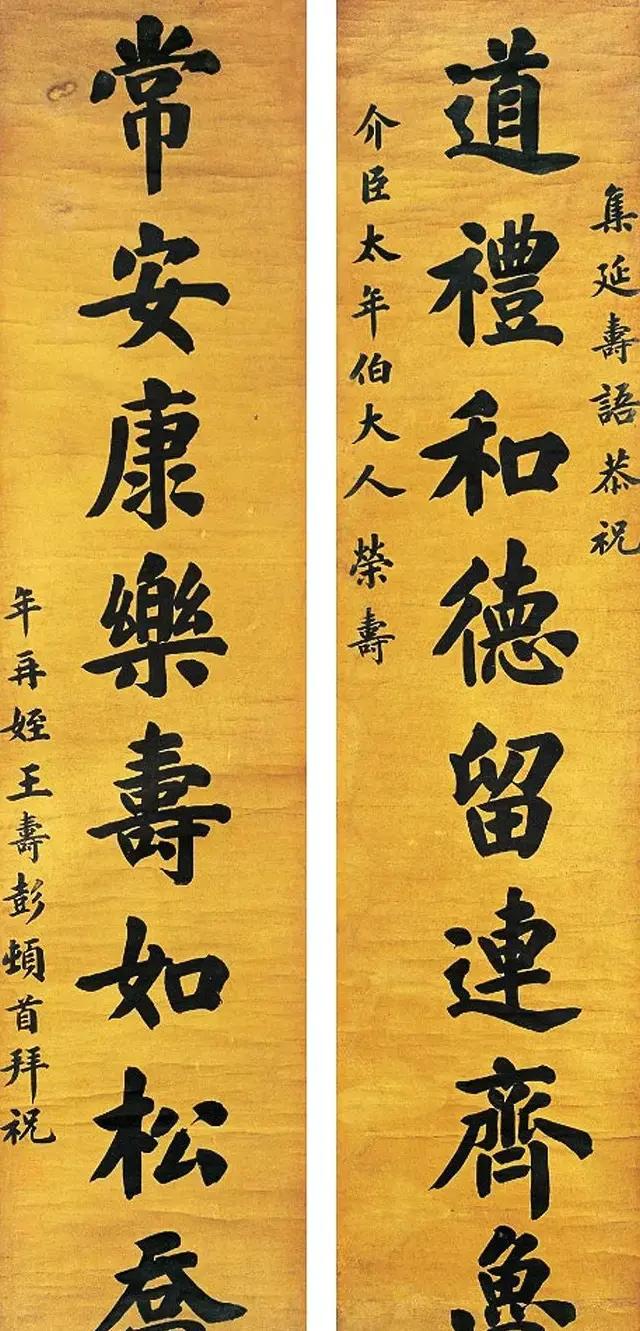 集延壽語恭祝
道禮和德留連齊魯
介臣太年伯大人 榮壽
常安康樂壽如松喬
年再姪王壽彭頓首拜祝